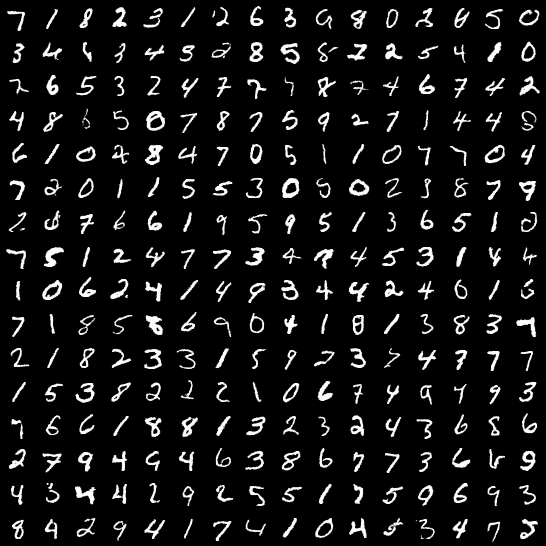 7 1 8 2 3 1 2 6 3 9 8 0 2 6 5 0
3 4 4 3 4 5 2 8 5 8 2 2 5 4 1 0
7 6 5 3 2 4 7 7 9 8 7 4 6 7 4 2
4 8 6 5 0 7 8 7 5 9 2 7 1 4 4 8
6 1 0 2 8 4 7 0 5 1 1 0 7 7 0 4
7 2 0 1 1 5 5 3 0 5 0 2 8 8 7 9
2 0 7 6 6 1 9 5 9 5 1 3 6 5 1 0
7 5 1 2 4 7 7 3 4 9 4 5 3 1 4 4
1 0 6 2 4 1 4 9 3 4 4 2 4 0 1 5
7 1 8 5 8 6 9 0 4 1 8 1 3 8 3 7
2 1 8 2 3 3 1 5 9 7 3 7 4 7 7 7
1 5 3 8 2 2 2 1 0 6 7 4 9 4 9 3
7 6 6 1 8 8 1 3 2 3 2 4 3 6 8 6
2 7 9 4 9 4 6 3 8 6 7 7 3 6 6 9
4 3 4 4 2 9 2 5 5 1 7 5 9 6 9 3
8 9 2 9 4 1 7 4 1 0 4 5 3 4 7 2